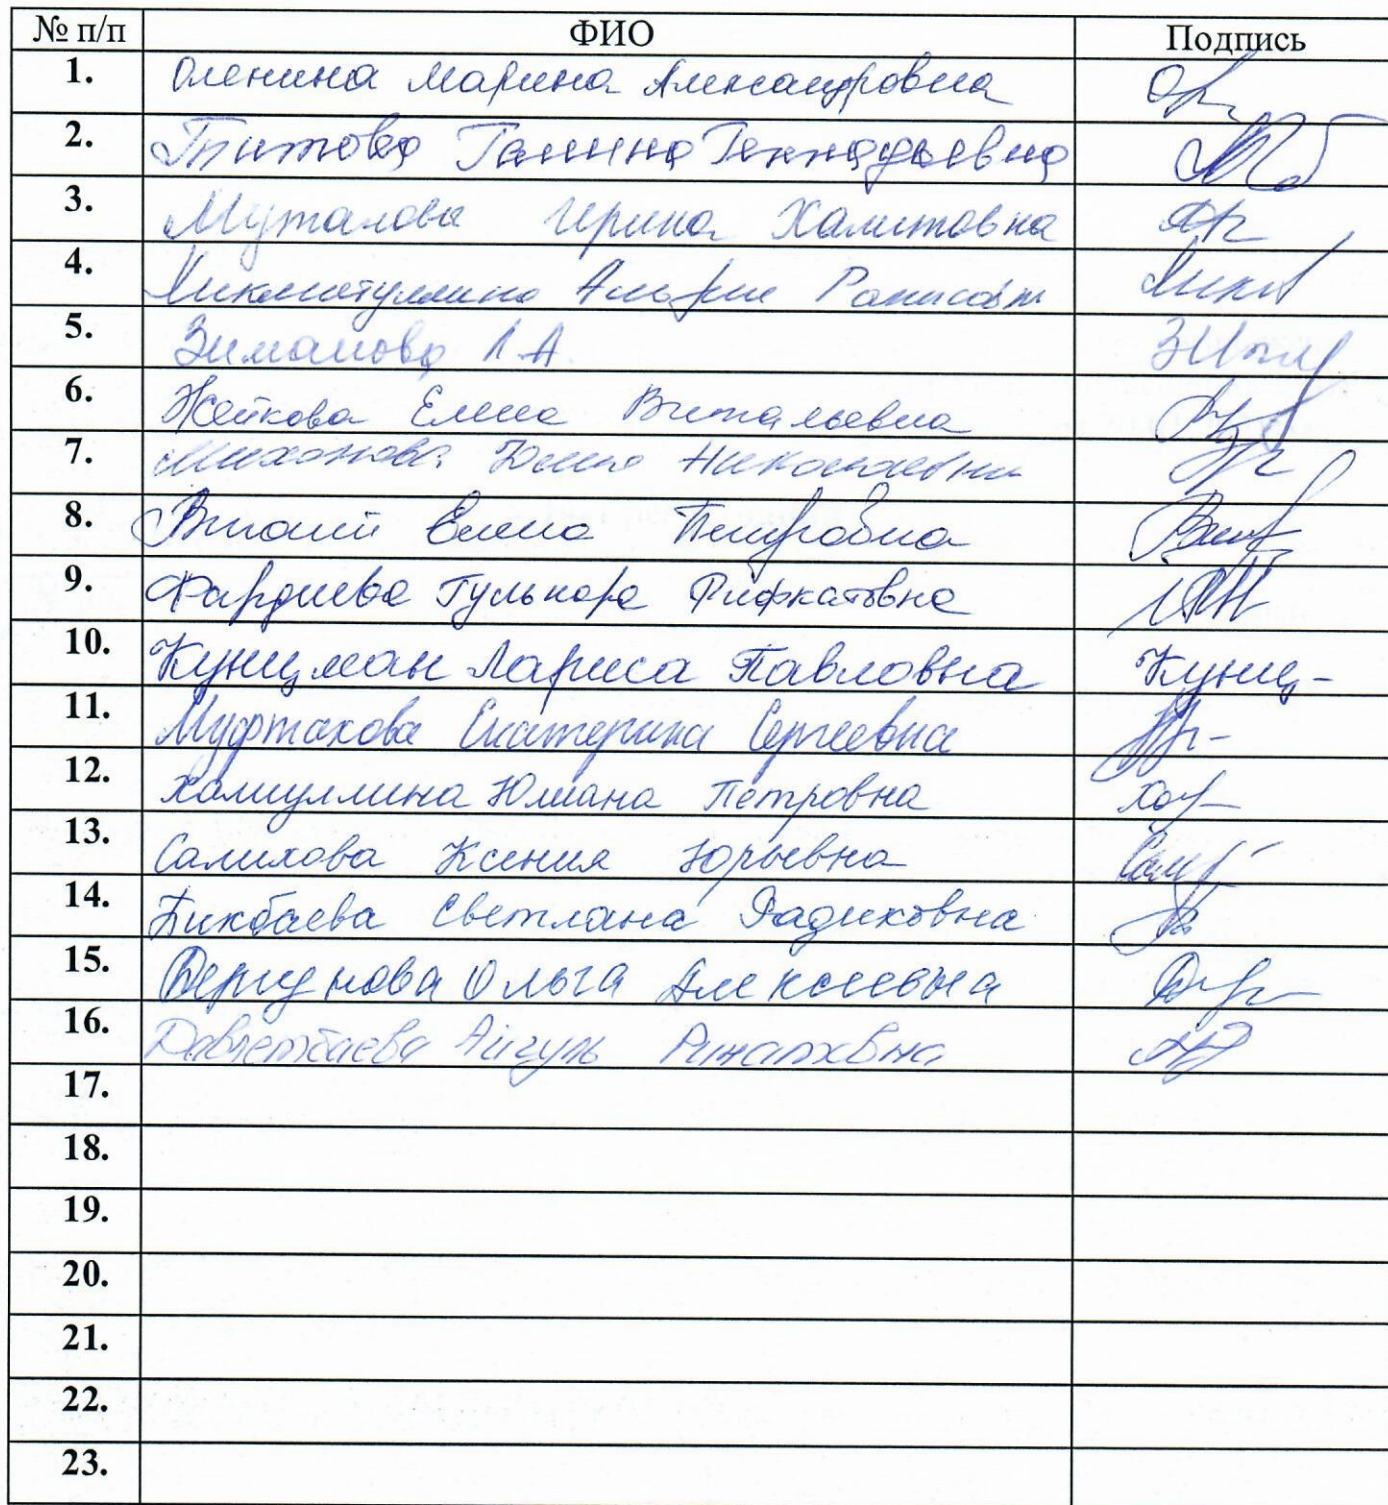 № п/п ФИО Подпись
1. Оленина Марина Александровна
2. Титова Галина Геннадьевна
3. Муталова Ирина Халитовна
4.
5. Зиманова Л.А.
6. Жейкова Елена Витальевна
7. Николаевна
8. Елена Петровна
9. Фардиева Гульнара Рифкатовна
10. Кунцман Лариса Павловна Кунц-
11. Муфтахова Екатерина Сергеевна
12. Халиуллина Юлиана Петровна
13. Салихова Ксения Юрьевна
14. Бикбаева Светлана Радиковна
15. Вергунова Ольга Алексеевна
16. Давлетбаева Айгуль Ринатовна
17.
18.
19.
20.
21.
22.
23.